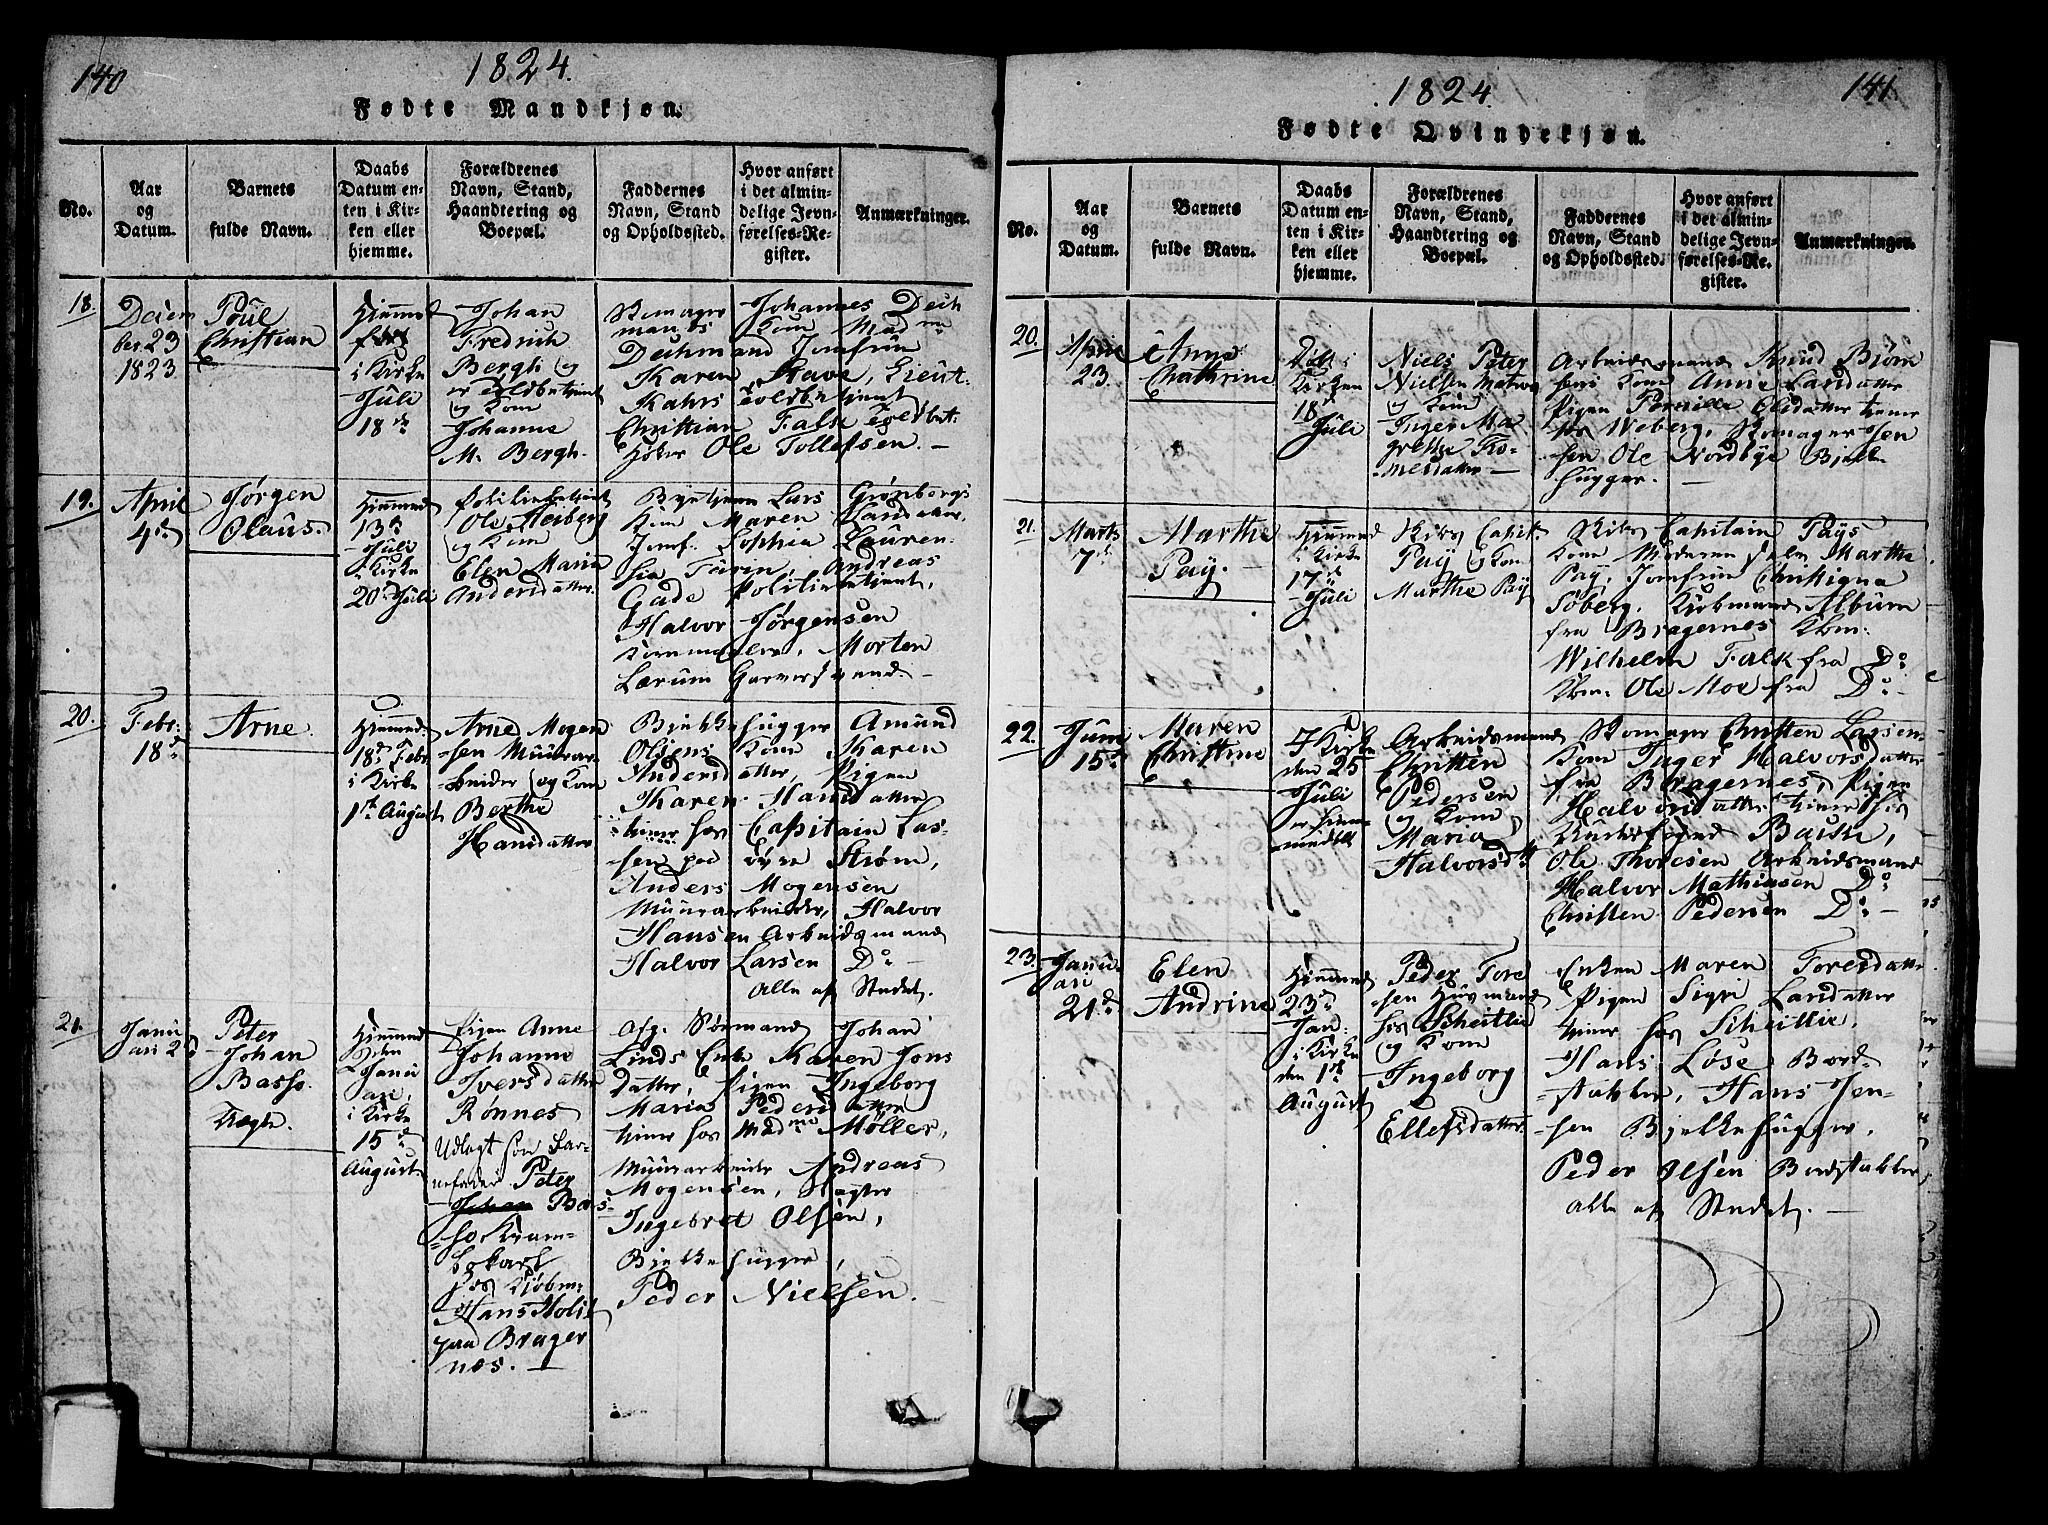 140
1824.
Fødte Mandkjøn.
No.
Aar
og
Datum.
Barnets
fulde Navn.
Daabs
Datum en-
ten i Kir-
ken eller
hjemme.
Forældrenes
Navn, Stand,
Haandtering og
Boepæl.
Faddernes
Navn, Stand
og Opholdssted.
Hvor anført
i det almin-
delige Jevn-
førelses-Re-
gister.
Anmærkninger.
18.
Decem
ber 23
1823
Poul
Christian
Hjemmed
i Kirke
Juli
18de
Johan
Fredrich
Bergh og
Kone
Johanne
M. Bergh.
Johannes Deich
man os Kone Madme
Deihmand Jomfrue
Karen Rave, Lieut.
Kahrs
Christian Falk
Høker Ole Tollefsen. –
19.
April
4de
Jørgen
Olaus.
Hjemmed
13de
Juli
i Kirke
20de Juli
Politiebetjent
Ole Meiberg
og Kone
Elen Maria
Andersdatter.
Bytjener Lars Grønbergs
Kone Maren Landatter.
Jomf. Sophea Lauren-
tia Turin, Andreas
Gade Politiebetjent,
Halvor Jørgensen
Kornmaaler, Morten
Lærum Garversvend. –
20.
Febr.
18de
Arne.
Hjemmed
18de Febr
i Kirke
1ste August
Arne Mogen
sen Muurar-
beider og Kone
Berthe
Hansdatter
Bjelkehugger Amund
Olsens Kone Karen
Andersdatter, Pigen
Karen Hansdatter
tiener hos Capitain Las-
sen paa øvre Strøm,
Anders Mogensen
Muurarbeider, Halvor
Hansen Arbeidsmand
Halvor Larsen Do –
Alle af Stedet.
21.
Janu
ari 2d
Peter
Johan
Basso.
Uægte.
Hjemmed
den
Janu
ari,
i Kirke
15de
August
Pigen Anne
Johanne
Iversdatter
Rønnes
Udlagt som Bar-
nefader Peter
Johan Bas-
so Kram-
hos Kjøbm.
Hans Holst
paa Brager
næs. –
Afg. Sørmand Johan
Linds Enke Karen Jons
datter, Pigen Ingeborg
Maria Pedersdatter
tiener hos Madme Møller,
Muurarbeider Andreas
Mogensen, Slagter
Ingebret Olsen,
Bjelkehugger,
Peder Nielsen. –
141.
1824.
Fødte Qvindekjøn.
No.
Aar
og
Datum.
Barnets
fulde Navn.
Daabs
Datum en-
ten i Kir-
ken eller
hjemme.
Forældrenes
Navn, Stand,
Haandtering og
Boepæl.
Faddernes
Navn, Stand
og Opholdssted.
Hvor anført
i det almin-
delige Jevn-
førelses-Re-
gister.
Anmærkninger.
20.
April
23.
Anne
Chathrine
Døbt i
Kirken
18de
Juli
Niels Peter
Nielsen Matros
og Kone
Inger Ma
grethe Tho-
mesdatter –
Arbeidsmand Knud Biørn
sens Kone Anne Landatter
Pigen Pernille Olsdatter tiener
hos Weberg, Skomager Jen
sen Ole Nordbye Bjelke
hugger. –
21.
Marts
7de
Marthe
Pay.
Hjemmed
i Kirke
17de
Juli
Skibs Capit.
Pay og Kone
Marthe Pay
Skibs Capitain Pays
Kone Moderen selv Marthe
Pay, Jomfrue Christiana
Søberg, Kjøbmand Album
fra Bragernes Kbm.
Wilhelm Falk fra Do
Kbm. Ole Moe fra Do –
22.
Juni
15de
Maren
Christine
I Kirke
den 25d
Juli
er hjem-
medøbt
Arbeidsmand
Christen
Pedersen
og Kone
Maria
Halvorsdtt
Skomager Christen Larsens
Kone Inger Halvorsdatter
fra Bragernes, Pigen
Halvorsdatter tiener hos
Bache,
Ole Thoresen Arbeidsmand
Halvor Mathiasen Do
Christen Pedersen Do –
23.
Janu
ari
21de
Elen
Andrine
Hjemmed
23de
Jan.
i Kirke
den 1ste
August
Peder Tore
sen Huusmand
hos Scheitlie
og Kone
Ingeborg
Ellefsdatter.
Enken Maren Toresdatter
Pigen Sigri Landatter
tiener hos Scheitlie,
Hans Løse Bord-
stabler, Hans Jen-
sen Bjelkehugger,
Peder Olsen Bordstabler
Alle af Stedet. –